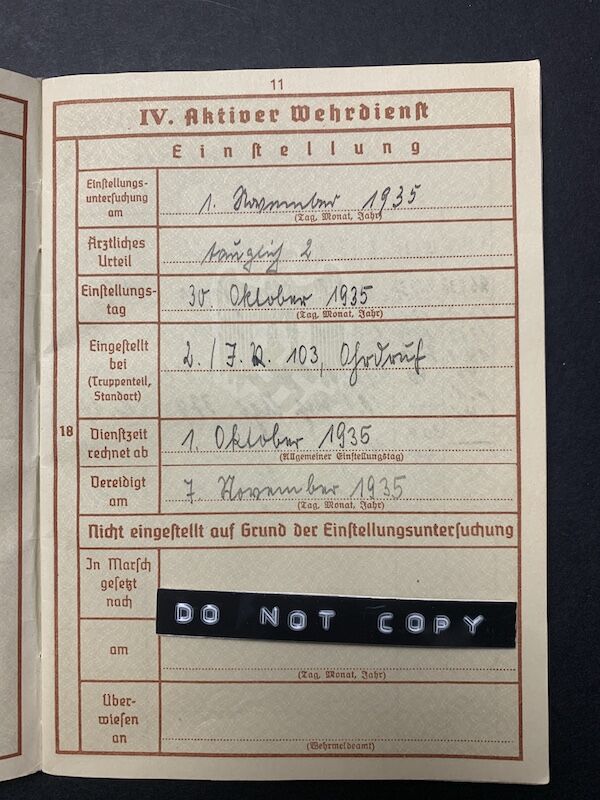 11
IV. Aktiver Wehrdienst
Einstellung
Einstellungs-
untersuchung
am
1. November 1935
(Tag, Monat, Jahr)
Ärztliches
Urteil
tauglich 2
Einstellungs-
tag
30. Oktober 1935
(Tag, Monat, Jahr)
Eingestellt
bei
(Truppenteil,
Standort)
2./J.R. 103, Ohrdruf
18
Dienstzeit
rechnet ab
1. Oktober 1935
(Allgemeiner Einstellungstag)
Vereidigt
am
7. November 1935
(Tag, Monat, Jahr)
Nicht eingestellt auf Grund der Einstellungsuntersuchung
In Marsch
gesetzt
nach
DO NOT COPY
am
(Tag, Monat, Jahr)
Über-
wiesen
an
(Wehrmeldeamt)